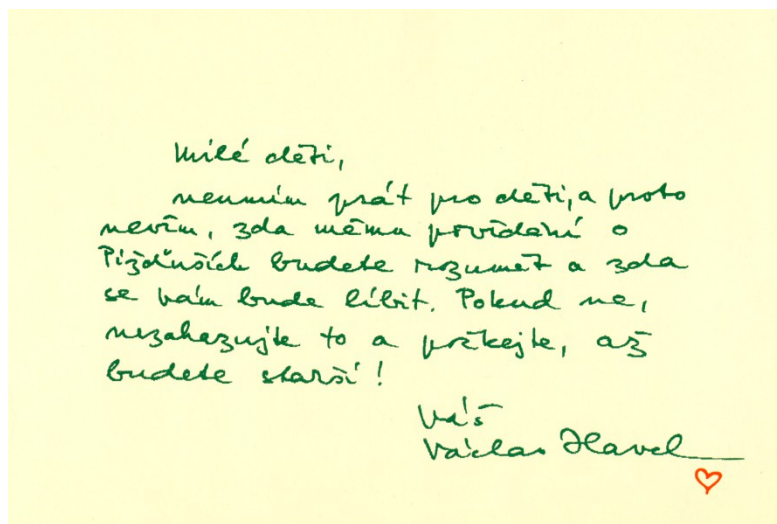 Milé děti,
neumím psát pro děti, a proto
nevím, zda mému povídání o
Pižďuších budete rozumět a zda
se vám bude líbit. Pokud ne,
nezahazujte to a počkejte, až
budete starší!
Váš
Václav Havel